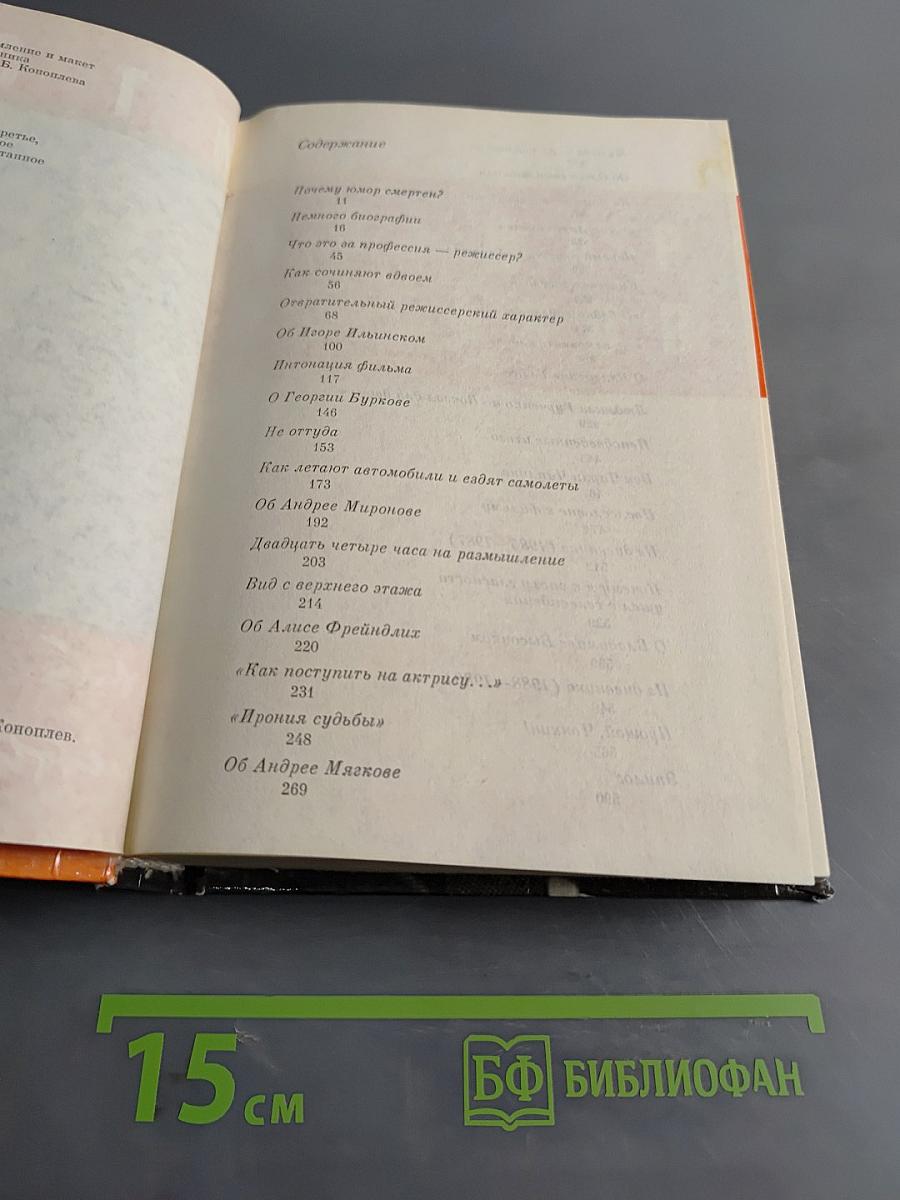 мление и макет
ника
Б. Коноплева
ретье,
ое
танное
Коноплев.
Содержание
Почему юмор смертен?
11
Немного биографии
16
Что это за профессия — режиссер?
45
Как сочиняют вдвоем
56
Отвратительный режиссерский характер
68
Об Игоре Ильинском
100
Интонация фильма
117
О Георгии Буркове
146
Не оттуда
153
Как летают автомобили и ездят самолеты
173
Об Андрее Миронове
192
Двадцать четыре часа на размышление
203
Вид с верхнего этажа
214
Об Алисе Фрейндлих
220
«Как поступить на актрису...»
231
«Ирония судьбы»
248
Об Андрее Мягкове
269
15 см
БФ БИБЛИОФАН